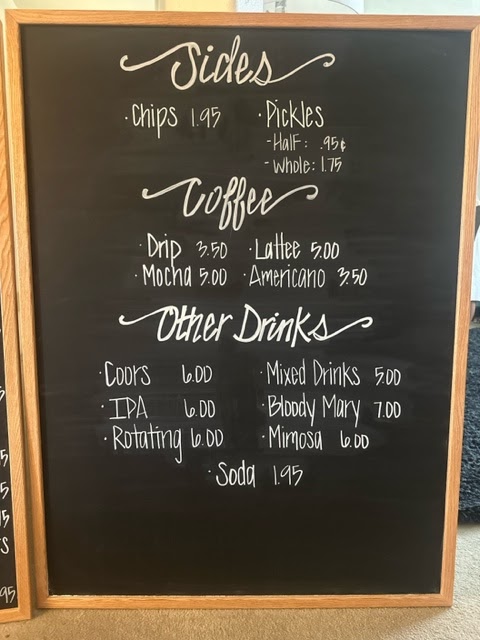 Sides
· Chips 1.95 · Pickles
- Half: .95¢
- Whole: 1.75
Coffee
· Drip 3.50 · Lattee 5.00
· Mocha 5.00 · Americano 3.50
Other Drinks
· Coors 6.00 · Mixed Drinks 5.00
· IPA 6.00 · Bloody Mary 7.00
· Rotating 6.00 · Mimosa 6.00
· Soda 1.95